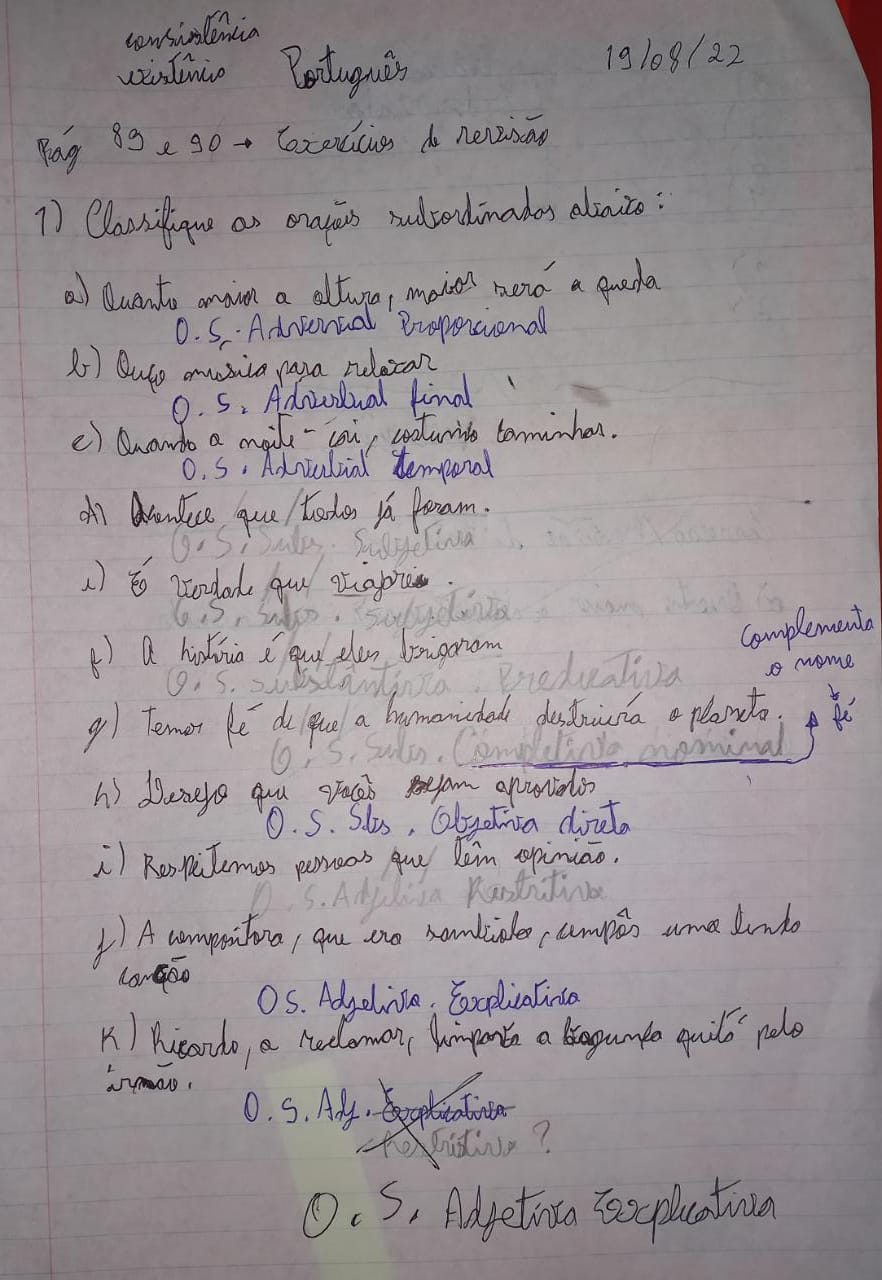 consistência
existência
Português
19/08/22
Pág 89 e 90 → Exercícios de revisão
1) Classifique as orações subordinadas abaixo:
a) Quanto maior a altura, maior será a queda
O. S. Adverbial Proporcional
b) Ouço musica para relaxar
O. S. Adverbial final
c) Quando a noite cai, costumo caminhar.
O. S. Adverbial temporal
d) Acontece que/todos já foram.
O. S. Subs. Subjetiva
e) É verdade que/viajarei.
O. S. Subs. Subjetiva
f) A história é que/eles brigaram
O. S. substantiva. Predicativa
complementa
o nome
fé
g) Temos fé de/que/a humanidade destruirá o planeta.
O. S. Subs. Completiva nominal
h) Desejo que vocês sejam aprovados
O. S. Sbs. Objetiva direta
i) Respeitemos pessoas que/têm opinião.
O. S. Adjetiva Restritiva
j) A compositora, que era, compôs uma linda
canção
O S. Adjetiva. Explicativa
K) Ricardo, a reclamar, limpava a bagunça pelo
irmão.
O. S. Adj. Explicativa
Restritiva ?
O. S. Adjetiva Explicativa